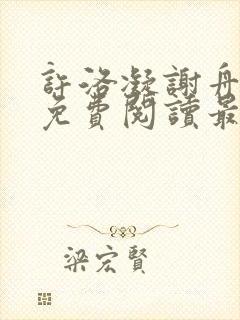 許洛凝謝舟
免費閱讀最
梁宏賢